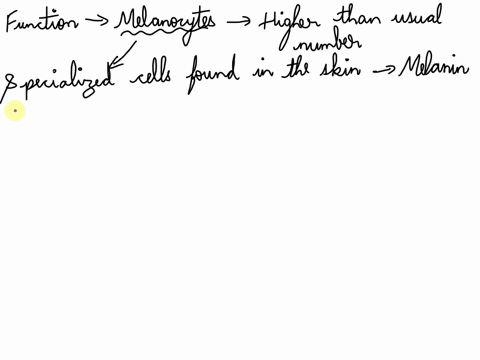 Function → Melanocytes → Higher than usual
number
Specialized cells found in the skin → Melanin